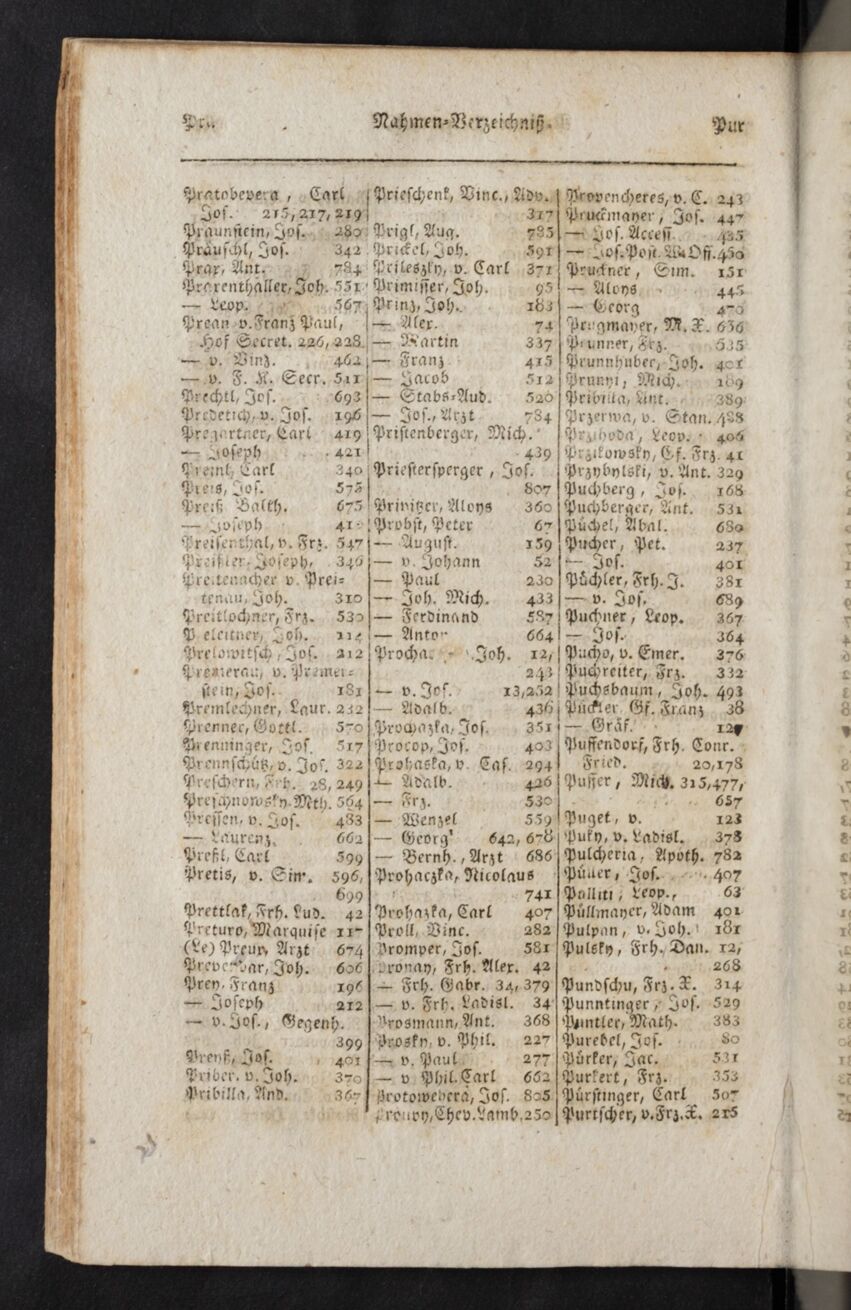 Nahmen-Verzeichniß.
Pur
Pratobevera, Carl
Jos. 215, 217, 219
Praunstein, Jos. 280
Präuschl, Jos. 342
Prax, Ant. 784
Praxenthaller, Joh. 551
— Leop. 567
Prean v. Franz Paul,
Hof Secret. 226, 228
— v. Vinz. 462
— v. F. K. Secr. 511
Prechtl, Jos. 693
Prederich, v. Jos. 196
Pregartner, Carl 419
— Joseph 421
Preml, Carl 340
Preis, Jos. 575
Preiß Balth. 675
— Joseph
Preisenthal, v. Frz. 547
Preißler, Joseph, 346
Preitenacher v. Prei-
tenau, Joh. 310
Preitlochner, Frz. 530
Joh. 114
Prelowitsch, Jos. 212
Premerau, v. Premer-
stein, Jos. 181
Premlechner, Laur. 232
Prenner, Gottl. 570
Prenninger, Jos. 517
Prennschütz, v. Jos. 322
Preschern, Frh. 28, 249
Preschnowsky, Mth. 564
Pressen, v. Jos. 483
— Laurenz. 662
Preßl, Carl 599
Pretis, v. Sim. 596,
699
Prettlak, Frh. Lud. 42
Preturo, Marquise 117
(Le) Preux, Arzt 674
Joh. 606
Prey, Franz 196
— Joseph 212
— v. Jos., Gegenh.
399
Preyß, Jos. 401
Priber, v. Joh. 370
Pribilla, And. 367
Prieschenk, Vinc., Adv.
317
Prigl, Aug. 785
Prickel, Joh. 591
Prileszky, v. Carl 371
Primisser, Joh. 95
Prinz, Joh. 183
— Alex. 74
— Martin 337
— Franz 415
— Jacob 512
— Stabs-Aud. 520
— Jos., Arzt 784
Pristenberger, Mich.
439
Priestersperger, Jos.
807
Privitzer, Aloys 360
Probst, Peter 67
— August. 159
— v. Johann 52
— Paul 230
— Joh. Mich. 433
— Ferdinand 587
— Anton 664
Joh. 12,
243
— v. Jos. 13, 252
— Adalb. 436
Prochazka, Jos. 351
Procop, Jos. 403
Prohaska, v. Caj. 294
— Adalb. 426
— Frz. 530
— Wenzel 559
— Georg 642, 678
— Bernh., Arzt 686
Prohaczka, Nicolaus
741
Prohazka, Carl 407
Proll, Vinc. 282
Promper, Jos. 581
Pronay, Frh. Alex. 42
— Frh. Gabr. 34, 379
— v. Frh. Ladisl. 34
Prosmann, Ant. 368
Prosky, v. Phil. 227
— v. Paul 277
— v Phil. Carl 662
Protowevera, Jos. 805
Chev. Lamb. 250
Provencheres, v. C. 243
Pruckmayer, Jos. 447
— Jos. Access. 435
— Jos. Post. W. Off. 450
Pruckner, Sim. 151
— Aloys 445
— Georg 470
Prugmayer, M. X. 636
Prunner, Frz. 635
Prunnhuber, Joh. 401
Prunyi, Mich. 109
Pribilla, Ant. 389
Przerwa, v. Stan. 488
Przihoda, Leop. 406
Przikowsky, Gf. Frz. 41
Przybylski, v. Ant. 329
Puchberg, Jos. 168
Puchberger, Ant. 531
Püchel, Abal. 680
Pucher, Pet. 237
— Jos. 401
Püchler, Frh. J. 381
— v. Jos. 689
Puchner, Leop. 367
— Jos. 364
Pucho, v. Emer. 376
Puchreiter, Frz. 332
Puchsbaum, Joh. 493
Pückler Gf. Franz 38
— Gräf.
Puffendorf, Frh. Conr.
Fried. 20, 178
Puffer, Mich. 315, 477,
657
Puget, v. 123
Puky, v. Ladisl. 378
Pulcheria, Apoth. 782
Püller, Jos. 407
Palliti, Leop., 63
Püllmayer, Adam 401
Pulpan, v. Joh. 181
Pulsky, Frh. Dan. 12,
268
Pundschu, Frz. X. 314
Punntinger, Jos. 529
Puntler, Math. 383
Purebel, Jos. 80
Pürker, Jac. 531
Purkert, Frz. 353
Pürstinger, Carl 507
Purtscher, v. Frz. X. 215